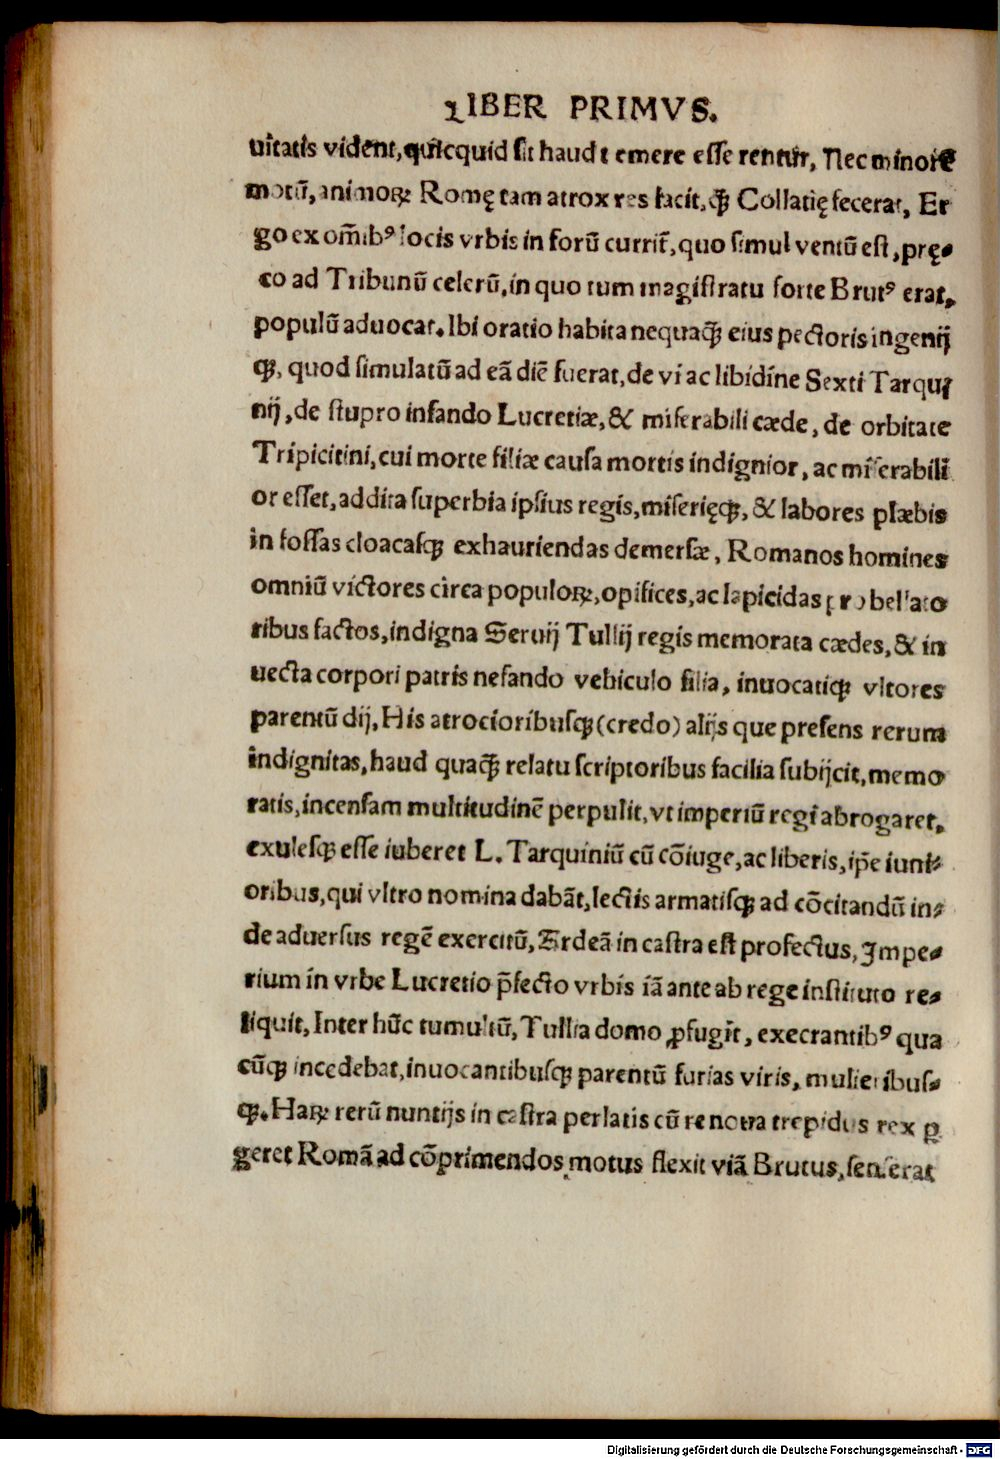 LIBER PRIMVS.
uitatis vident,quicquid sit haud temere esse rentur, Nec minorē
motū,animoꝝ Romę tam atrox res facit,ꝙ̃ Collatię fecerat, Er
go ex om̄ibꝰ locis vrbis in forū currit̃,quo simul ventū est,pręs
co ad Tribunū celerū,in quo tum magistratu forte Brutꝰ erat,
populū aduocat. Ibi oratio habita nequaꝙ̃ eius pectoris ingenij
ꝙ, quod simulatū ad eā diē fuerat,de vi ac libidine Sexti Tarqui
nij,de stupro infando Lucretiæ,& miserabili cæde, de orbitate
Tripicitini,cui morte filiæ causa mortis indignior, ac miserabili
or esset,addita superbia ipsius regis,miserięꝙ, & labores plæbis
in fossas cloacasꝙ exhauriendas demersæ, Romanos homines
omniū victores circa populoꝝ,opifices,ac lapicidas pro bellato
ribus factos,indigna Seruij Tullij regis memorata cædes,& in
uecta corpori patris nefando vehiculo filia, inuocatiꝙ vltores
parentū dij, His atrocioribusꝙ(credo) alijs que presens rerum
indignitas,haud quaꝙ̃ relatu scriptoribus facilia subijcit,memo
ratis,incensam multitudinē perpulit,vt imperiū regi abrogaret,
exulesꝙ esse iuberet L. Tarquiniū cū cōiuge,ac liberis,ip̄e iuni⸗
oribus,qui vltro nomina dabāt,lectis armatisꝙ ad cōcitandū in⸗
de aduersus regē exercitū, Ardeā in castra est profectus, Impe⸗
rium in vrbe Lucretio p̄fecto vrbis iā ante ab rege instituto re⸗
liquit, Inter hūc tumultū, Tullia domo ꝓfugit, execrantibꝰ qua
cūꝙ incedebat,inuocantibusꝙ parentū furias viris, mulieribus⸗
ꝙ. Haꝝ rerū nuntijs in castra perlatis cū re noua trepidus rex ꝑ
geret Romā ad cōprimendos motus flexit viā Brutus,senserat
Digitalisierung gefördert durch die Deutsche Forschungsgemeinschaft - DFG